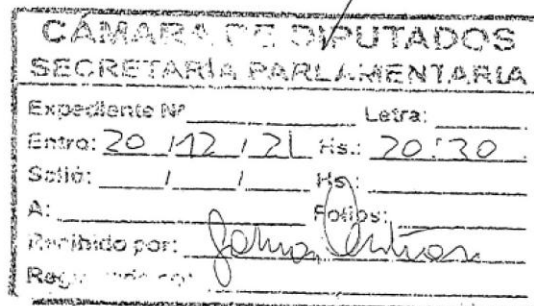 CÁMARA DE DIPUTADOS
SECRETARÍA PARLAMENTARIA
Expediente Nº Letra:
Entro: 20 / 12 / 21 Hs.: 20:30
Salió: / / Hs.:
A: Folios:
Recibido por: